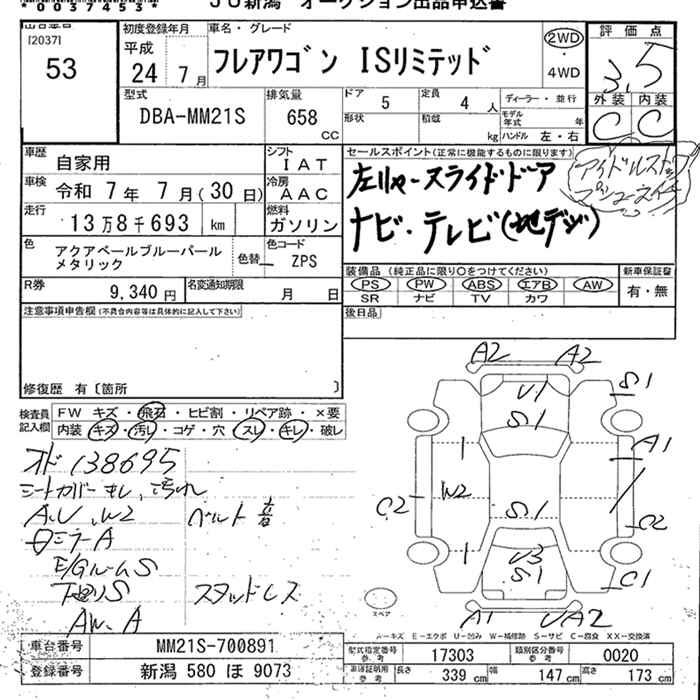 *0037453*
JU新潟 オークション出品申込書
[2037]
53
初度登録年月
平成
24年 7月
車名・グレード
フレアワゴン ISリミテッド
2WD
・
4WD
評価点
3.5
外装 内装
C C
型式
DBA-MM21S
排気量
658
CC
ドア
5
定員
4 人
ディーラー・並行
形状
積載
kg
モデル年式 年
ハンドル 左・右
車歴
自家用
シフト
IAT
車検
令和 7年 7月(30日)
冷房
AAC
走行
13万8千693 km
燃料
ガソリン
色
アクアペールブルーパール
メタリック
色替
色コード
ZPS
R券
9,340 円
名変通知期限
月 日
セールスポイント(正常に機能するものに限ります)
左リヤースライドドア
ナビ・テレビ(地デジ)
アイドルストップ
プシュースイッチ
装備品 (純正品に限り○をつけてください)
PS PW ABS エアB AW
SR ナビ TV カワ
新車保証書
有・無
後日品
注意事項申告欄(不具合内容等は具体的に記入して下さい)
修復歴 有〔箇所 〕
検査員記入欄
FW キズ・飛石・ヒビ割・リペア跡・×要
内装 キズ・汚レ・コゲ・穴・スレ・キレ・破レ
オド 138695
シートカバーキレ、汚れ
A.U.W2 ベルト音
ミラーA
E/GルームS
下回りS スタッドレス
AW.A
A2 A2
U1
S1
S1
A1
W2
C2
S1
C2
U3
S1
C1
A1 UA2
スペア
A-キズ E-エクボ U-凹み W-補修跡 S-サビ C-腐食 XX-交換済
車台番号
MM21S-700891
登録番号
新潟 580 ほ 9073
型式指定番号
参考
17303
類別区分番号
参考
0020
車検証明用
参考
長さ
339 cm
幅
147 cm
高さ
173 cm